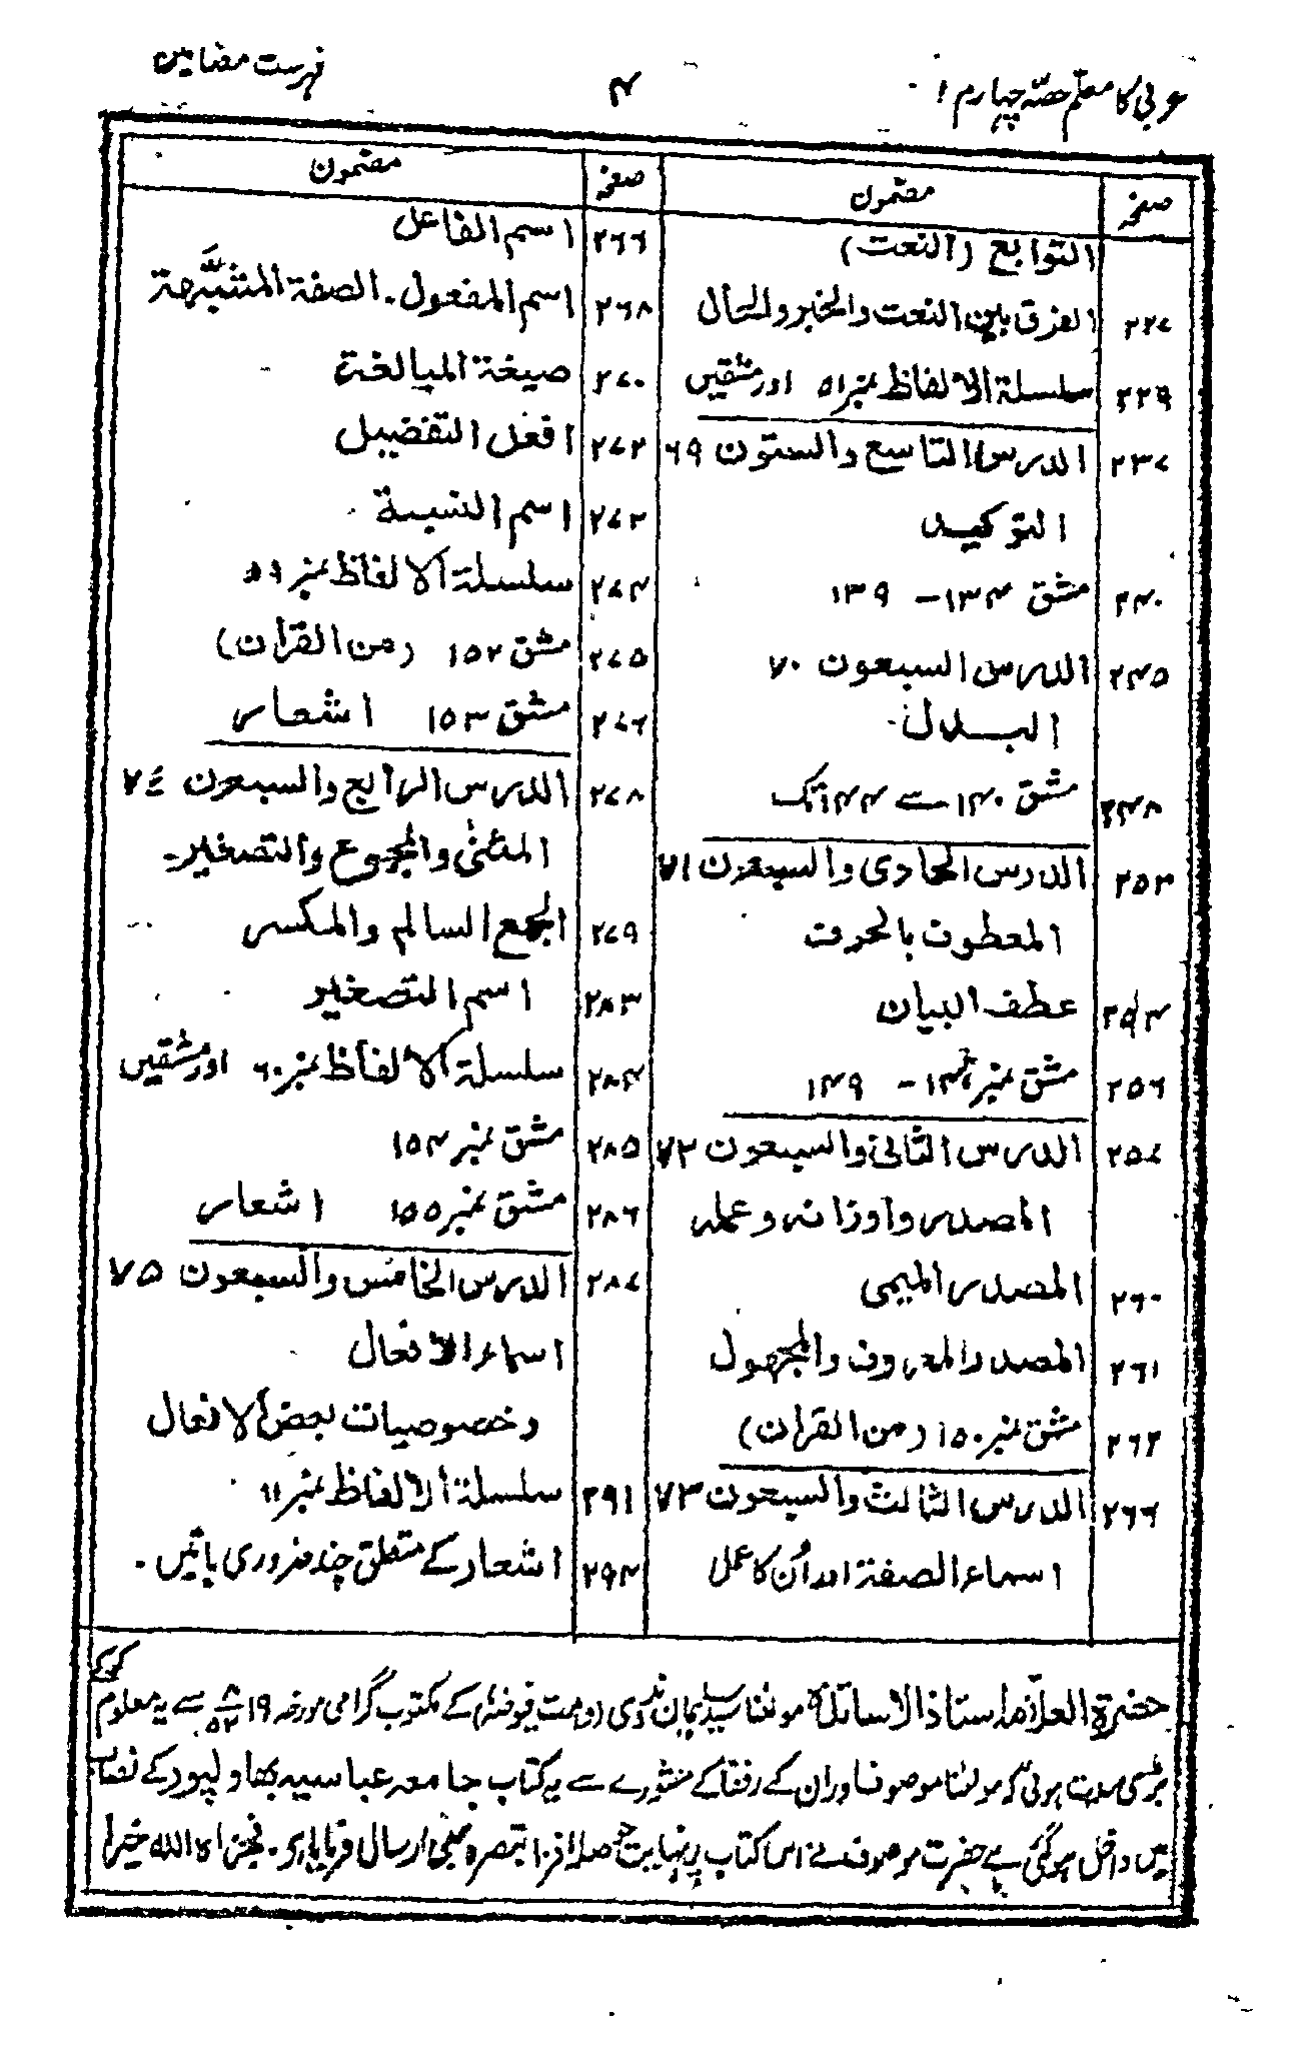 عربی کا معلّم حصّہ چہارم
۴
فہرست مضامین
صفحہ مضمون
التوابع (النعت)
۲۲۷ الفرق بین النعت والخبر والحال
۲۲۹ سلسلة الالفاظ نمبر ۵۱ اور مشقیں
۲۳۷ الدرس التاسع والستون ۶۹
التوکید
۲۴۰ مشق ۱۳۴ – ۱۳۹
۲۴۵ الدرس السبعون ۷۰
البدل
۲۴۸ مشق ۱۴۰ سے ۱۴۴ تک
۲۵۳ الدرس الحادی والسبعون ۷۱
المعطوف بالحرف
۲۵۴ عطف البیان
۲۵۶ مشق نمبر – ۱۴۹
۲۵۷ الدرس الثانی والسبعون ۷۲
المصدر واوزانہ وعملہ
۲۶۰ المصدر المیمی
۲۶۱ المصدر المعروف والمجهول
۲۶۲ مشق نمبر ۱۵۰ (من القرآن)
۲۶۶ الدرس الثالث والسبعون ۷۳
اسماء الصفة اور اُن کا عمل
صفحہ مضمون
۲۶۶ اسم الفاعل
۲۶۸ اسم المفعول ۔ الصفة المشبَّهة
۲۷۰ صیغة المبالغة
۲۷۲ افعل التفضیل
۲۷۳ اسم النسبة
۲۷۴ سلسلة الالفاظ نمبر
۲۷۵ مشق ۱۵۲ (من القرآن)
۲۷۶ مشق ۱۵۳ اشعار
۲۷۸ الدرس الرابع والسبعون ۷٤
المثنیٰ والمجموع والتصغیر۔
۲۷۹ الجمع السالم والمکسر
۲۸۳ اسم التصغیر
۲۸۴ سلسلة الالفاظ نمبر ۶۰ اور مشقیں
۲۸۵ مشق نمبر ۱۵۴
۲۸۶ مشق نمبر ۱۵۵ اشعار
۲۸۷ الدرس الخامس والسبعون ۷۵
اسماء الافعال
وخصوصیات بعض الافعال
۲۹۱ سلسلة الالفاظ نمبر
۲۹۴ اشعار کے متعلق چند ضروری باتیں ۔
حضرة العلاّمہ استاذ الاساتذہ مولٰنا سید سلیمان ندوی (دامت فیوضہٗ) کے مکتوب گرامی مورخہ ۱۹ سے یہ معلوم کرکے
بڑی مسرت ہوئی کہ مولٰنا موصوف اور ان کے رفقا کے مشورے سے یہ کتاب جامعہ عباسیہ بھاولپور کے نصاب
میں داخل ہوگئی ہے حضرت موصوف نے اس کتاب پر نہایت حوصلہ افزا تبصرہ بھی ارسال فرمایا ہے ۔ فجزاہ اللہ خیرا